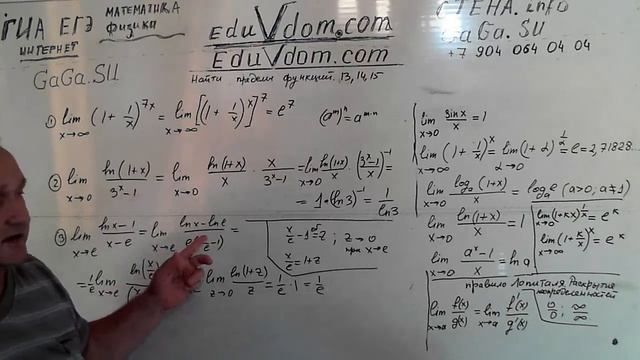 ГИА ЕГЭ МАТЕМАТИКА
физика
ИНТЕРНЕТ
GaGa.SU
EduVdom.com
EduVdom.com
Найти пределы функций. 13,14,15
СТЕНА.info
GaGa.SU
+7 904 064 04 04
1) lim x→∞ (1 + 1/x)^7x = lim x→∞ [(1 + 1/x)^x]^7 = e^7 (a^m)^n = a^m·n
2) lim x→0 ln(1+x)/3^x−1 = lim x→0 ln(1+x)/x · x/3^x−1 = lim x→0 ln(1+x)/x · (3^x−1/x)^−1 =
= 1·(ln3)^−1 = 1/ln3
3) lim x→e lnx−1/x−e = lim x→e lnx−lne/
x/e −1 = z ; z→0
при x→e
x/e = 1+z
= 1/e lim x→e ln(x/ lim z→0 ln(1+z)/z = 1/e · 1 = 1/e
lim x→0 sinx/x = 1
lim x→∞ (1 + 1/x)^x = lim α→0 (1+α)^1/α = e = 2,71828
lim x→0 log a (1+x)/x = log a e (a>0; a≠1)
lim x→0 ln(1+x)/x = 1
lim x→0 (1+kx)^1/x = e^k
lim x→∞ (1+k/x)^x = e^k
lim x→0 a^x−1/x = ln a
правило Лопиталя. Раскрытие
неопределенностей
lim x→a f(x)/g(x) = lim x→a f'(x)/g'(x)
0/0 ; ∞/∞